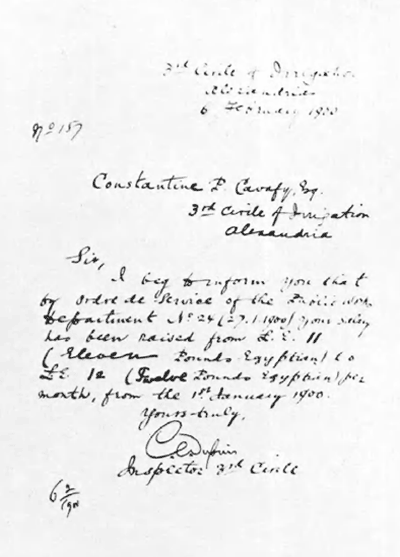 3rd Circle of Irrigation
Alexandria
6 February 1900
No 157
Constantine P. Cavafy, Esq.
3rd Circle of Irrigation
Alexandria
Sir,
I beg to inform you that
by ordre de service of the Public Works
Department No. 24 (27.1.1900) your salary
has been raised from L.E. 11
(Eleven Pounds Egyptian) to
L.E. 12 (Twelve Pounds Egyptian) per
month, from the 1st January 1900.
Yours truly,
Inspector 3rd Circle
6/2